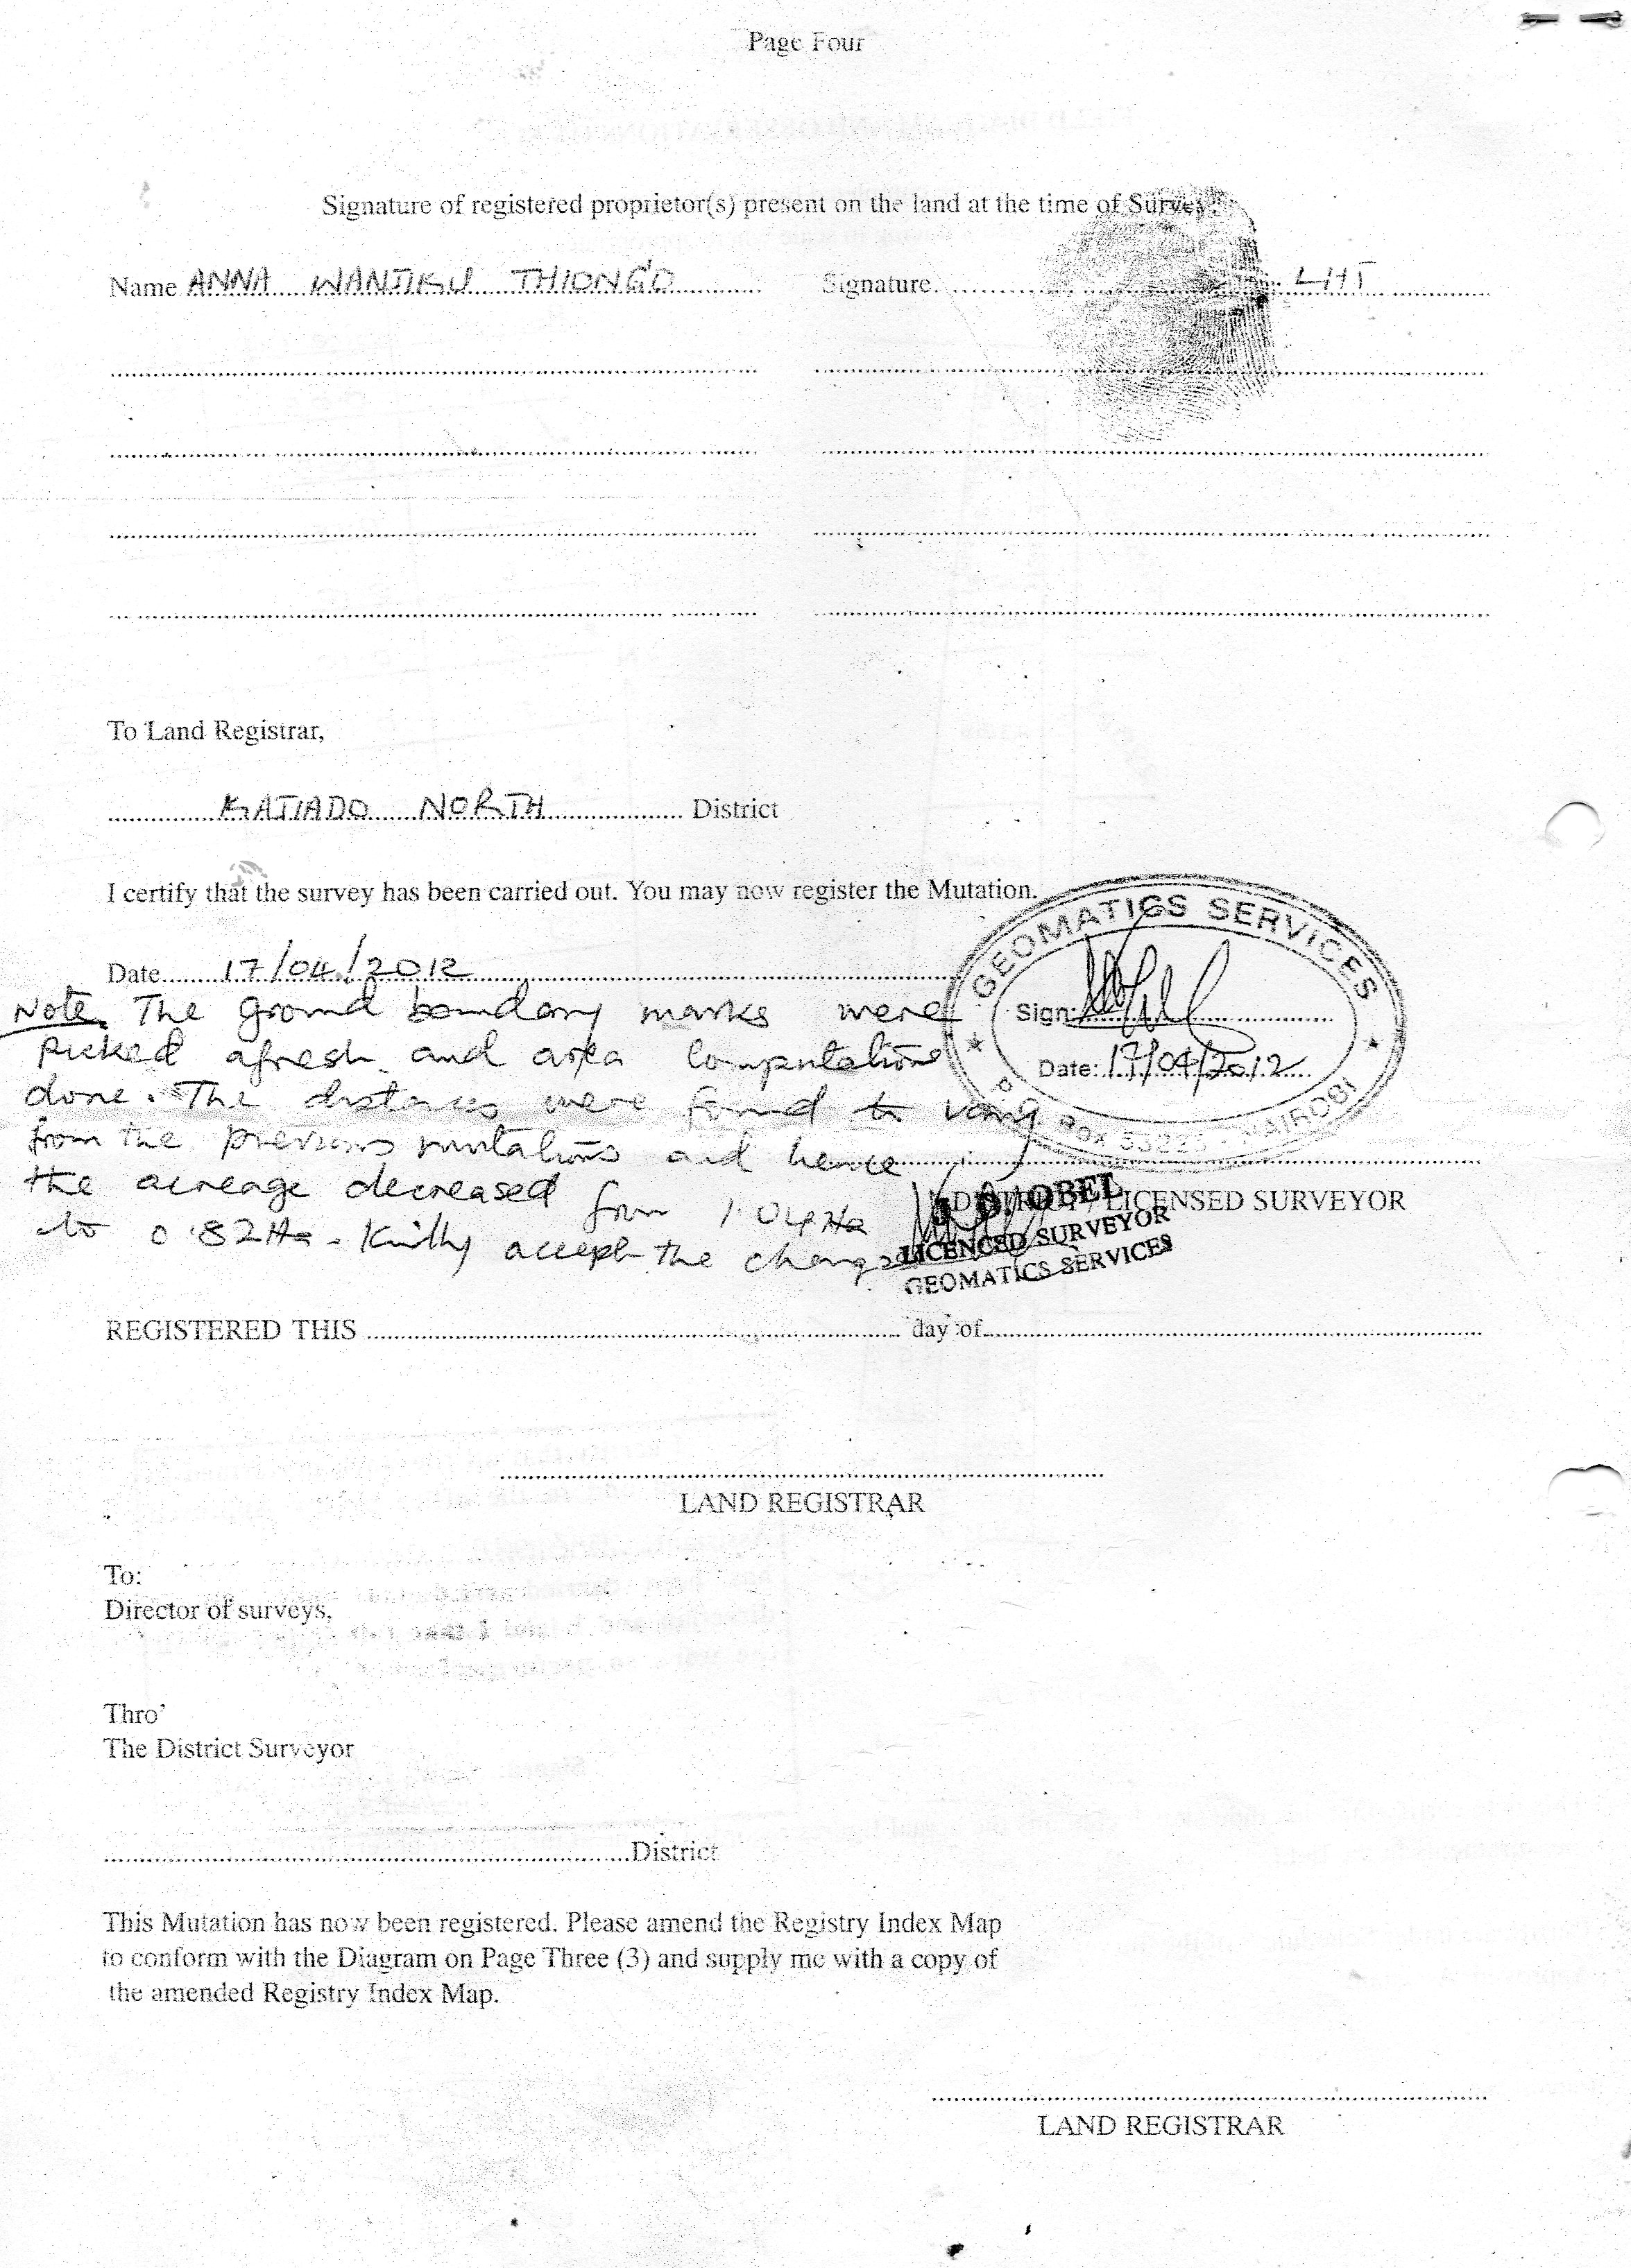 Page Four
Signature of registered proprietor(s) present on the land at the time of Survey:
Name ANNA WANJIKU THIONG'O Signature LHT
To Land Registrar,
KAJIADO NORTH District
I certify that the survey has been carried out. You may now register the Mutation.
Date 17/04/2012
GEOMATICS SERVICES
Sign:
Date: 17/04/2012
Box NAIROBI
Note. The ground boundary marks were
Picked afresh and area computations
done. The distances were found to vary
from the previous mutations and hence
the acreage decreased from 1.04Ha
to 0.82Ha. Kindly accept the changes
DISTRICT / LICENSED SURVEYOR
OBEL
LICENCED SURVEYOR
GEOMATICS SERVICES
REGISTERED THIS day of
LAND REGISTRAR
To:
Director of surveys,
Thro'
The District Surveyor
District
This Mutation has now been registered. Please amend the Registry Index Map
to conform with the Diagram on Page Three (3) and supply me with a copy of
the amended Registry Index Map.
LAND REGISTRAR